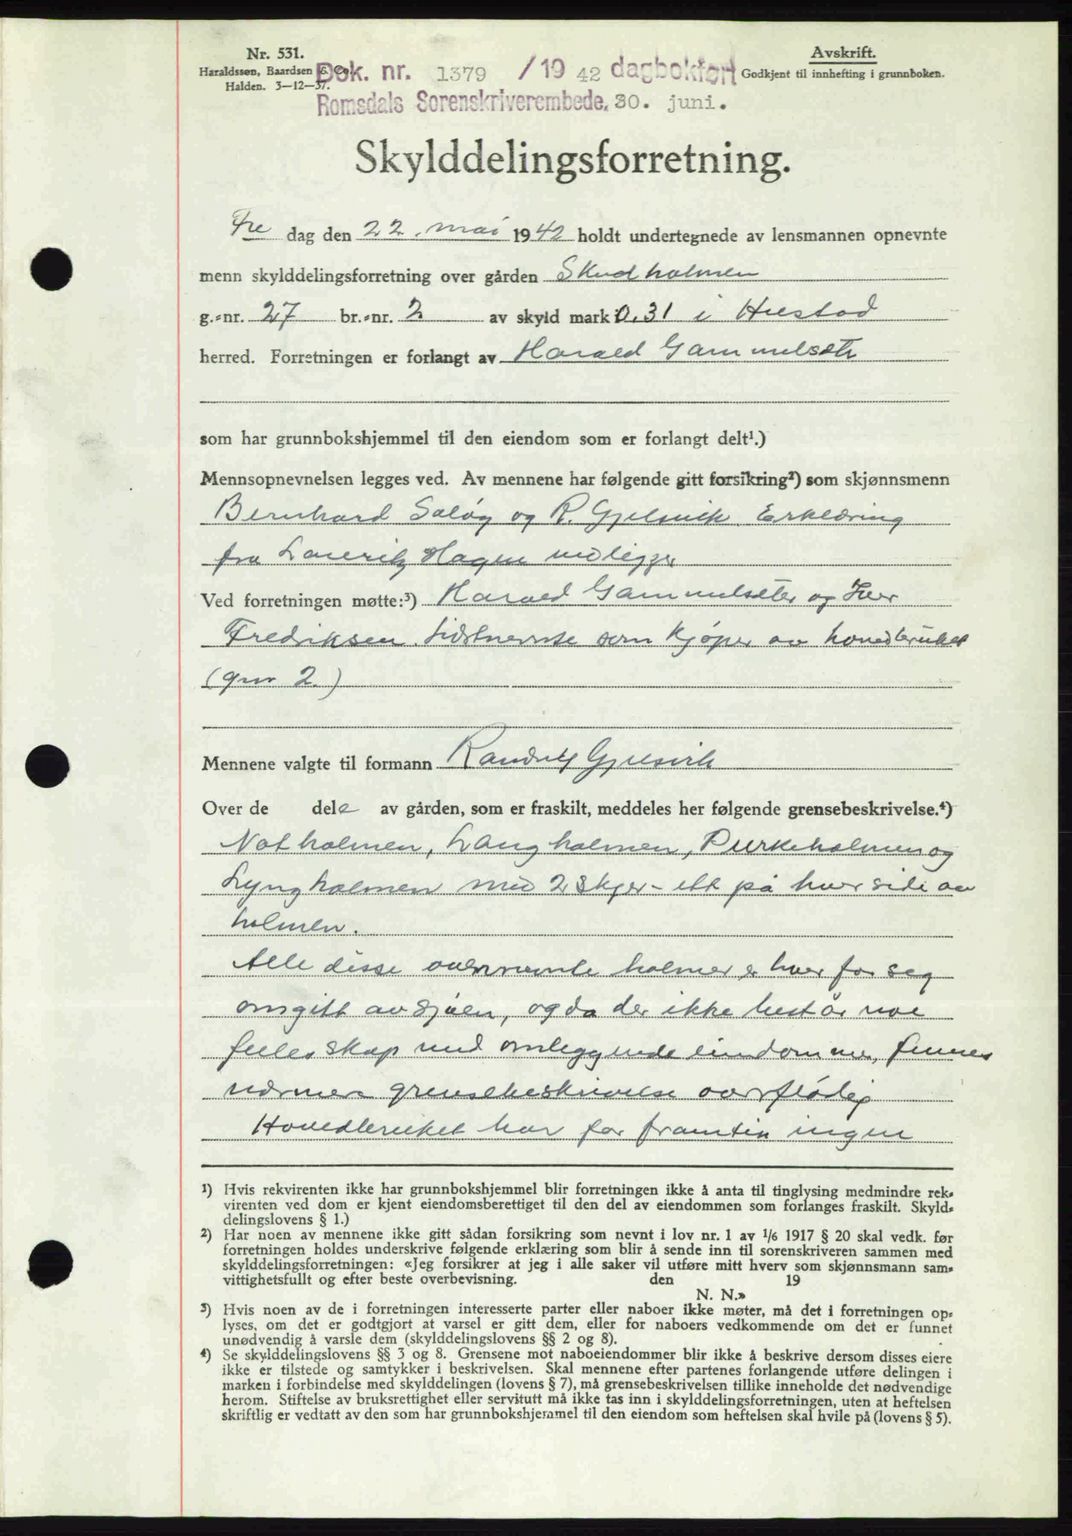 Nr. 531.
Haraldssen, Baardsen & Co.
Halden. 3-12-37.
Dok. nr. 1379 /19 42 dagbokført
Romsdals Sorenskriverembede. 30. juni.
Avskrift.
Godkjent til innhefting i grunnboken.
Skylddelingsforretning.
Fre dag den 22. mai 1942 holdt undertegnede av lensmannen opnevnte
menn skylddelingsforretning over gården Skudholmen
g.-nr. 27 br.-nr. 2 av skyld mark 0.31 i Hustad
herred. Forretningen er forlangt av Harald Gammelsæter
som har grunnbokshjemmel til den eiendom som er forlangt delt¹.)
Mennsopnevnelsen legges ved. Av mennene har følgende gitt forsikring²) som skjønnsmenn
Bernhard Saløy og R. Gjelsvik. Erklæring
fra Lauritz Hagen vedligger
Ved forretningen møtte:³) Harald Gammelsæter og Iver
Fredriksen. Sistnevnte som kjøper av hovedbruket
(gnr 2.)
Mennene valgte til formann Randulf Gjelsvik
Over de dele av gården, som er fraskilt, meddeles her følgende grensebeskrivelse.⁴)
Notholmen, Langholmen, Purkeholmen og
Lyngholmen med 2 skjer - ett på hver side av
holmen.
Alle disse ovennevnte holmer er hver for seg
omgitt av sjøen, og da der ikke består noe
felleskap med omliggende eiendommer, finnes
nærmere grensebeskrivelse overflødig
Hovedbruket har for framtin ingen
¹) Hvis rekvirenten ikke har grunnbokshjemmel blir forretningen ikke å anta til tinglysing medmindre rek-
virenten ved dom er kjent eiendomsberettiget til den del av eiendommen som forlanges fraskilt. Skyld-
delingslovens § 1.)
²) Har noen av mennene ikke gitt sådan forsikring som nevnt i lov nr. 1 av 1/6 1917 § 20 skal vedk. før
forretningen holdes underskrive følgende erklæring som blir å sende inn til sorenskriveren sammen med
skylddelingsforretningen: «Jeg forsikrer at jeg i alle saker vil utføre mitt hverv som skjønnsmann sam-
vittighetsfullt og efter beste overbevisning. den 19
N. N.»
³) Hvis noen av de i forretningen interesserte parter eller naboer ikke møter, må det i forretningen op-
lyses, om det er godtgjort at varsel er gitt dem, eller for naboers vedkommende om det er funnet
unødvendig å varsle dem (skylddelingslovens §§ 2 og 8).
⁴) Se skylddelingslovens §§ 3 og 8. Grensene mot naboeiendommer blir ikke å beskrive dersom disses eiere
ikke er tilstede og samtykker i beskrivelsen. Skal mennene efter partenes forlangende utføre delingen i
marken i forbindelse med skylddelingen (lovens § 7), må grensebeskrivelsen tillike inneholde det nødvendige
herom. Stiftelse av bruksrettighet eller servitutt må ikke tas inn i skylddelingsforretningen, uten at heftelsen
skriftlig er vedtatt av den som har grunnbokshjemmel til den eiendom som heftelsen skal hvile på (lovens § 5).